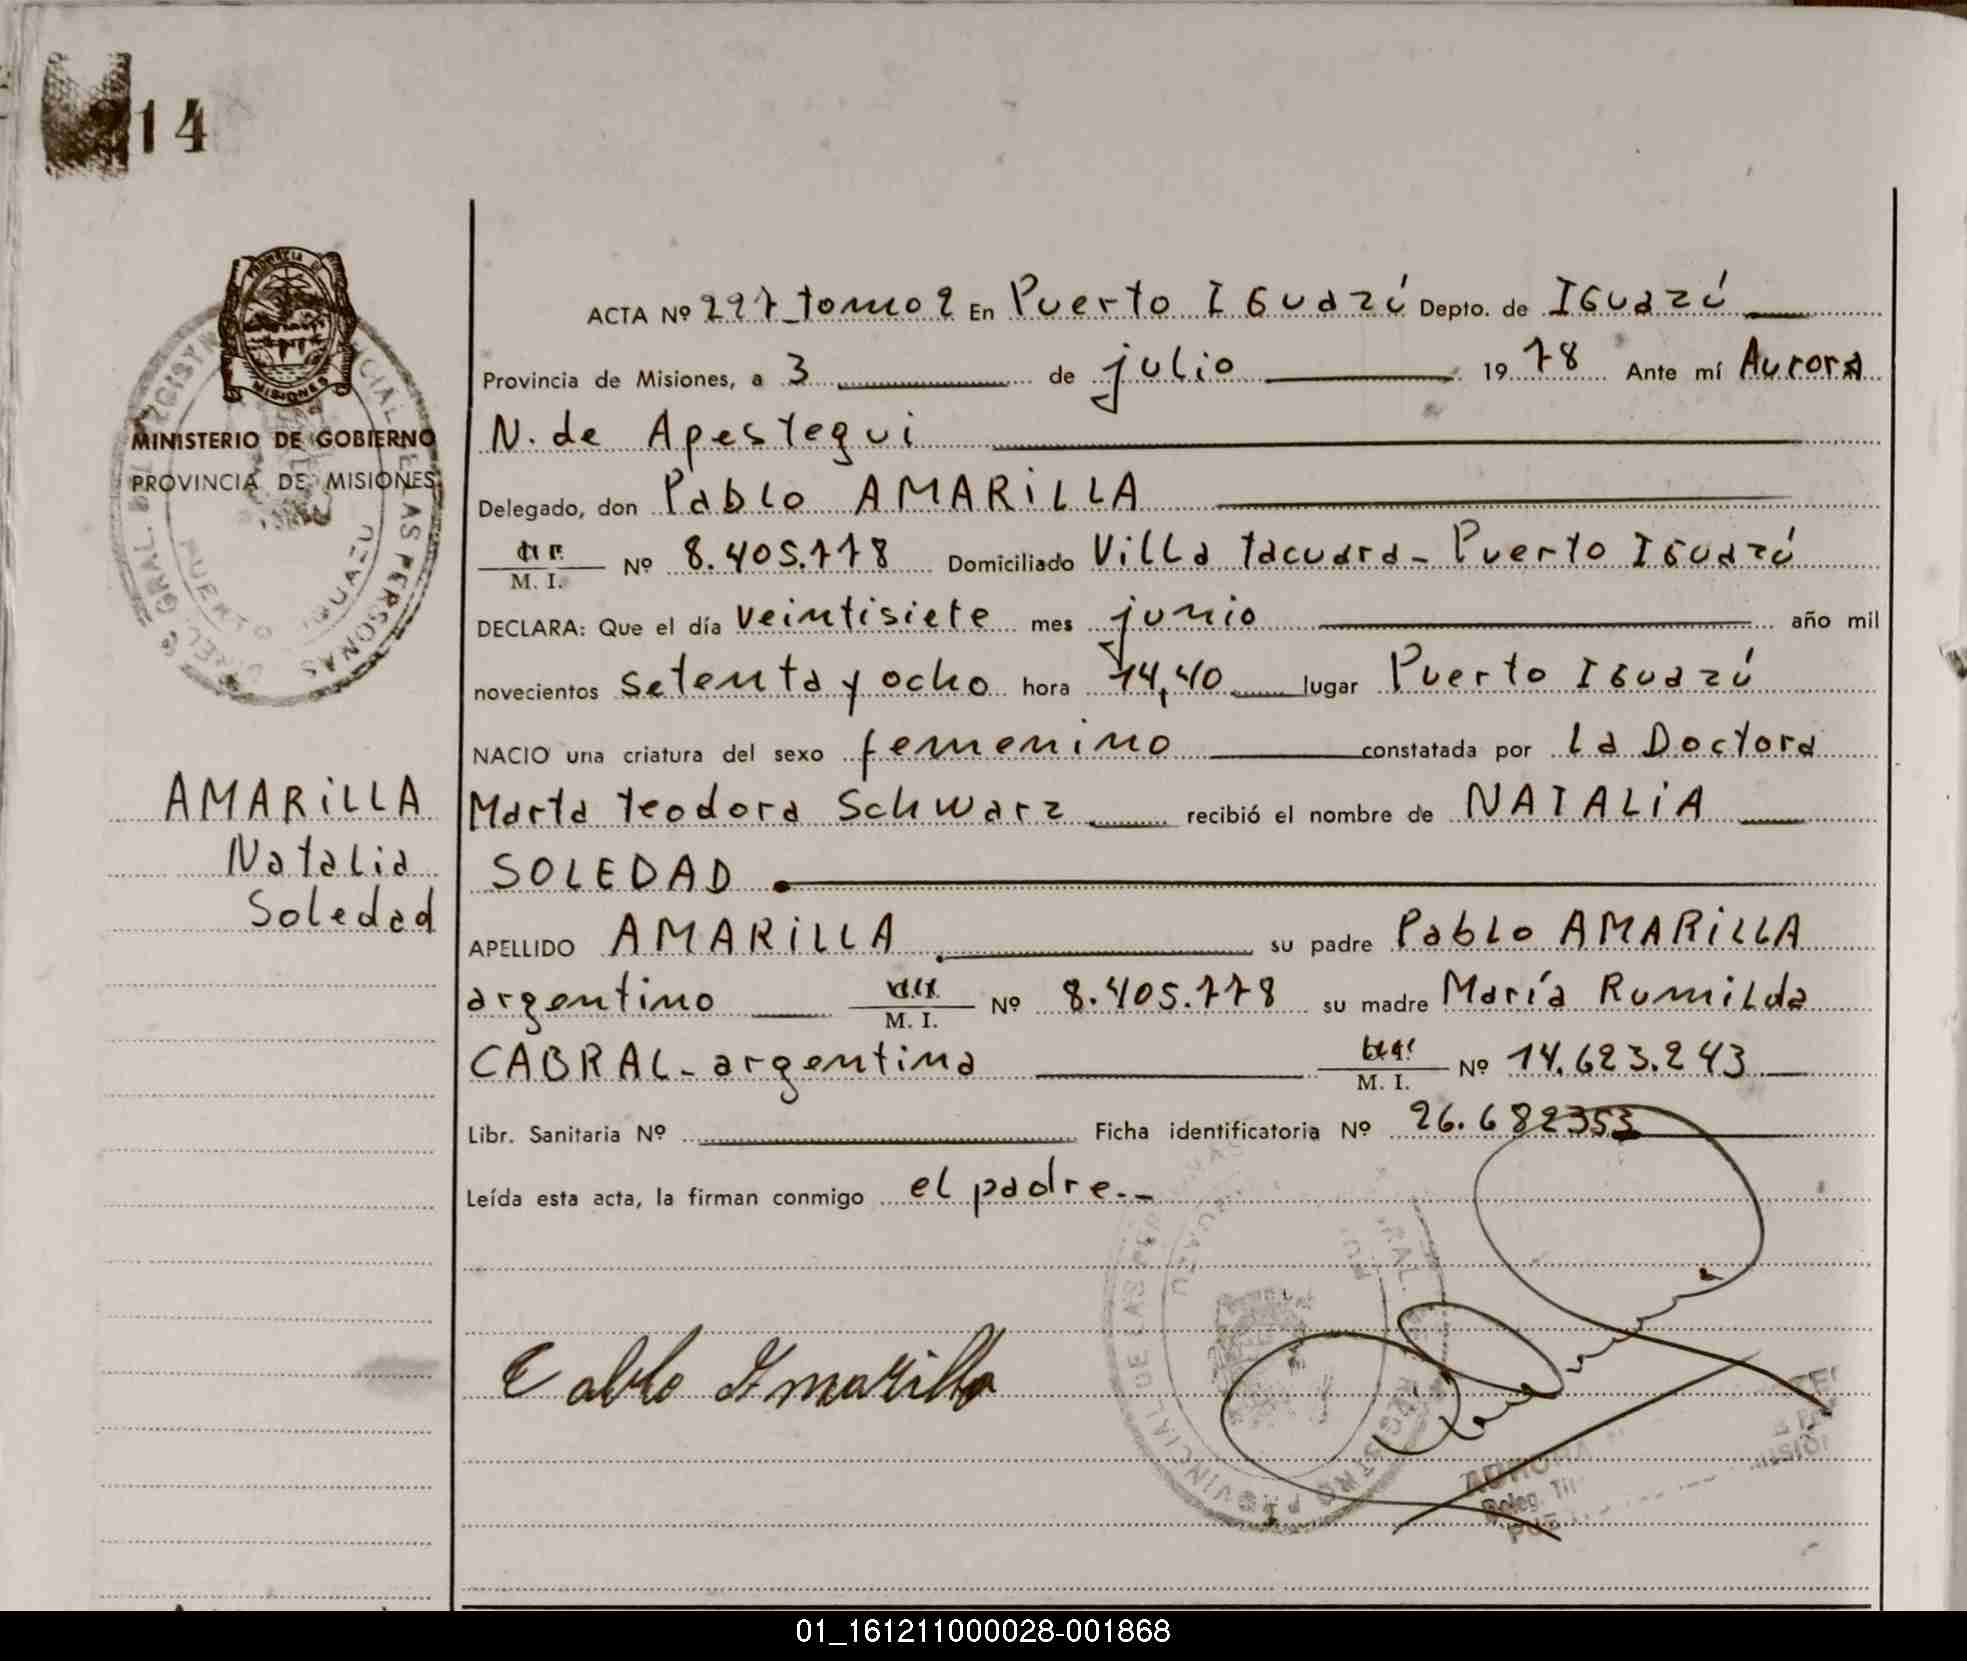 14
ACTA Nº 297 tomo 2 En Puerto IGuazú Depto. de IGuazú
Provincia de Misiones, a 3 de julio 1978 Ante mí Aurora
N. de Apestegui
MINISTERIO DE GOBIERNO
PROVINCIA DE MISIONES
Delegado, don Pablo AMARiLLA
M. I. Nº 8.405.778 Domiciliado Villa tacuara - Puerto IGuazú
DECLARA: Que el día veintisiete mes junio año mil
novecientos setenta y ocho hora 14,40 lugar Puerto IGuazú
NACIO una criatura del sexo femenino constatada por la Doctora
AMARiLLA
Natalia
Soledad
Marta teodora Schwarz recibió el nombre de NATALiA
SOLEDAD
APELLIDO AMARiLLA su padre Pablo AMARiLLA
argentino M. I. Nº 8.405.778 su madre María Rumilda
CABRAL - argentina M. I. Nº 14.623.243
Libr. Sanitaria Nº Ficha identificatoria Nº 26.682353
Leída esta acta, la firman conmigo el padre.-
Pablo Amarilla
01_161211000028-001868